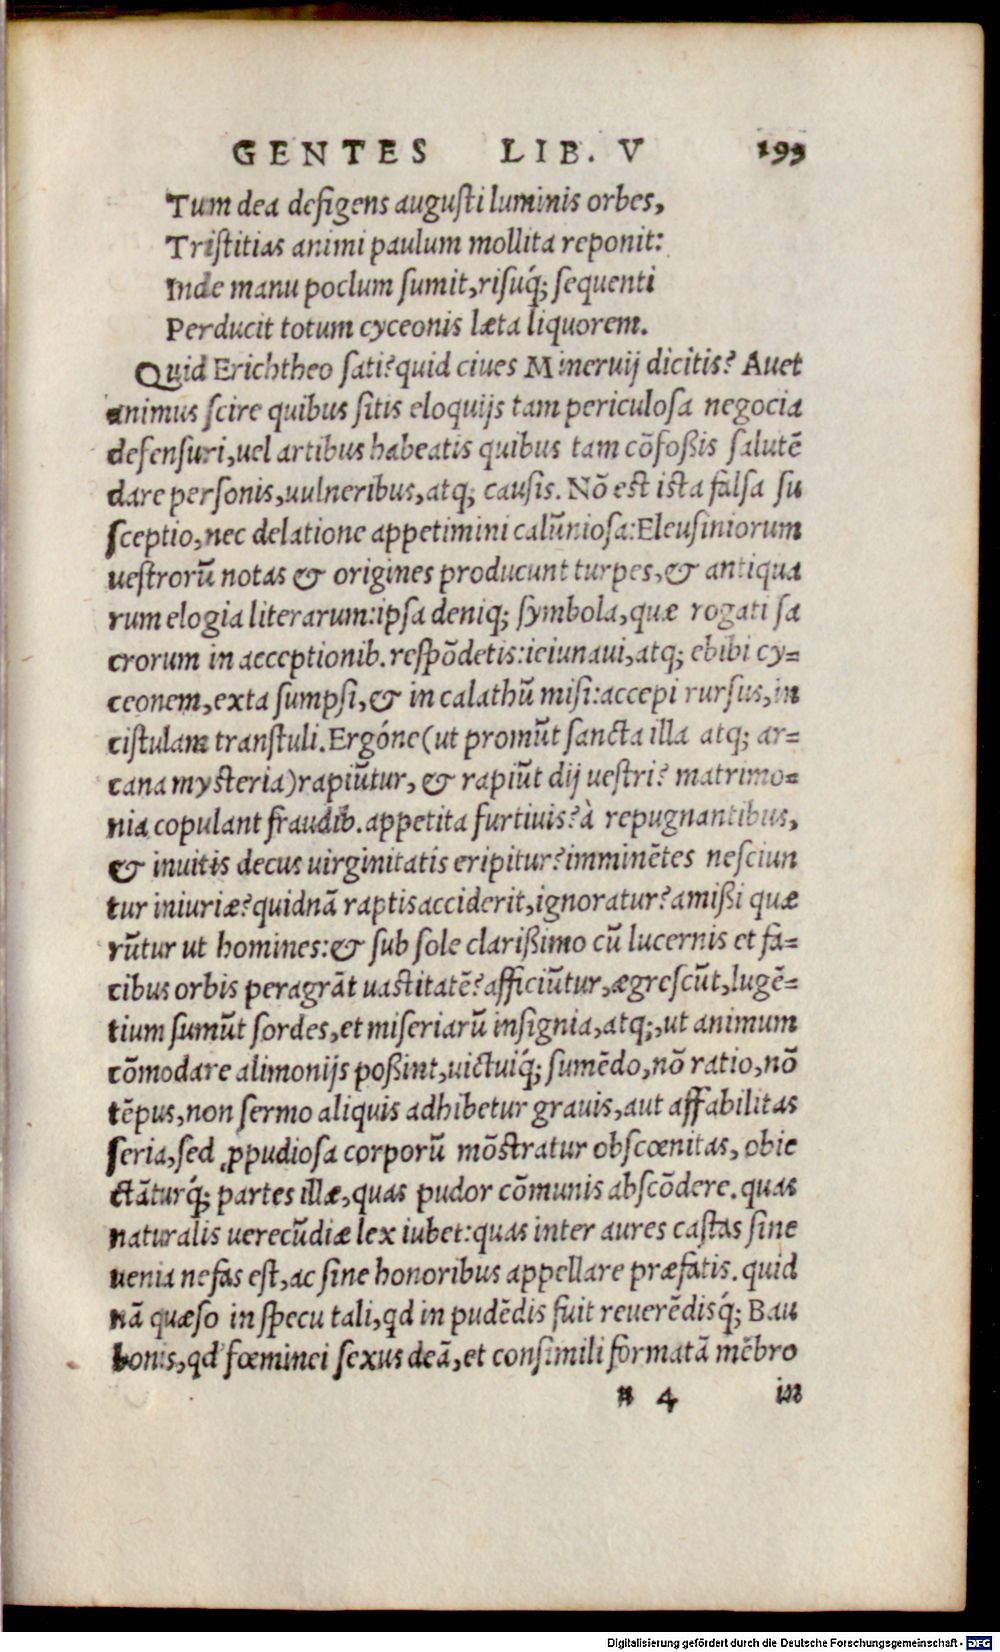 GENTES LIB. V 199
Tum dea defigens augusti luminis orbes,
Tristitias animi paulum mollita reponit:
Inde manu poclum sumit, risuq́; sequenti
Perducit totum cyceonis læta liquorem.
Quid Erichtheo sati? quid ciues Mineruij dicitis? Auet
animus scire quibus sitis eloquijs tam periculosa negocia
defensuri, uel artibus habeatis quibus tam cõfoßis salutẽ
dare personis, uulneribus, atq; causis. Nõ est ista falsa su
sceptio, nec delatione appetimini calũniosa: Eleusiniorum
uestrorũ notas & origines producunt turpes, & antiqua
rum elogia literarum: ipsa deniq; symbola, quæ rogati sa
crorum in acceptionib. respõdetis: ieiunaui, atq; ebibi cy=
ceonem, exta sumpsi, & in calathũ misi: accepi rursus, in
cistulam transtuli. Ergóne (ut promũt sancta illa atq; ar=
cana mysteria) rapiũtur, & rapiũt dij uestri? matrimo=
nia copulant fraudib. appetita furtiuis? à repugnantibus,
& inuitis decus uirginitatis eripitur? imminẽtes nesciun
tur iniuriæ? quidnã raptis acciderit, ignoratur? amißi quæ
rũtur ut homines: & sub sole clarißimo cũ lucernis et fa=
cibus orbis peragrãt uastitatẽ? afficiũtur, ægrescũt, lugẽ=
tium sumũt sordes, et miseriarũ insignia, atq;, ut animum
cõmodare alimonijs poßint, uictuiq́; sumẽdo, nõ ratio, nõ
tẽpus, non sermo aliquis adhibetur grauis, aut affabilitas
seria, sed ꝓpudiosa corporũ mõstratur obscœnitas, obie
ctãturq́; partes illæ, quas pudor cõmunis abscõdere. quas
naturalis uerecũdiæ lex iubet: quas inter aures castas sine
uenia nefas est, ac sine honoribus appellare præfatis. quid
nã quæso in specu tali, qd in pudẽdis fuit reuerẽdisq́; Bau
bonis, qd fœminei sexus deã, et consimili formatã mẽbro
n 4 in
Digitalisierung gefördert durch die Deutsche Forschungsgemeinschaft - DFG